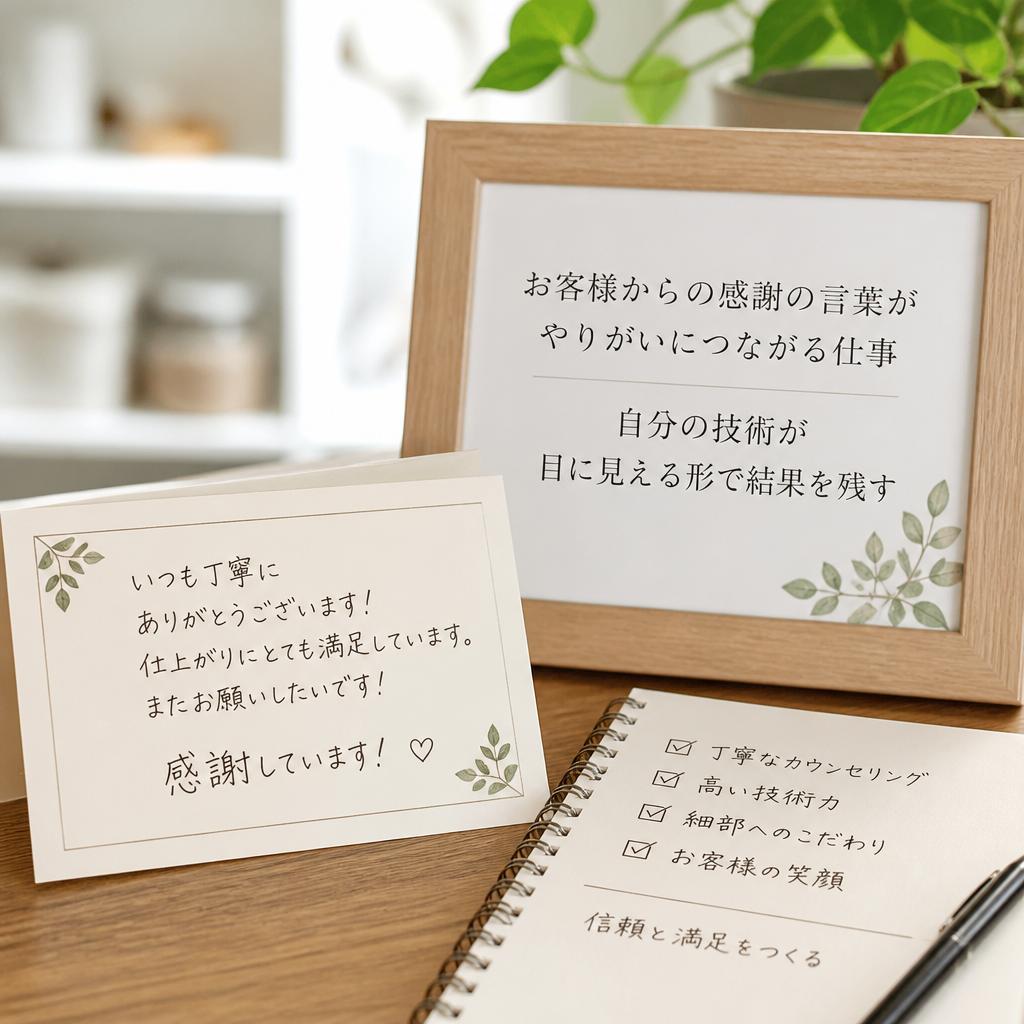 お客様からの感謝の言葉が
やりがいにつながる仕事
自分の技術が
目に見える形で結果を残す
いつも丁寧に
ありがとうございます!
仕上がりにとても満足しています。
またお願いしたいです!
感謝しています! ♡
☑ 丁寧なカウンセリング
☑ 高い技術力
☑ 細部へのこだわり
☑ お客様の笑顔
信頼と満足をつくる